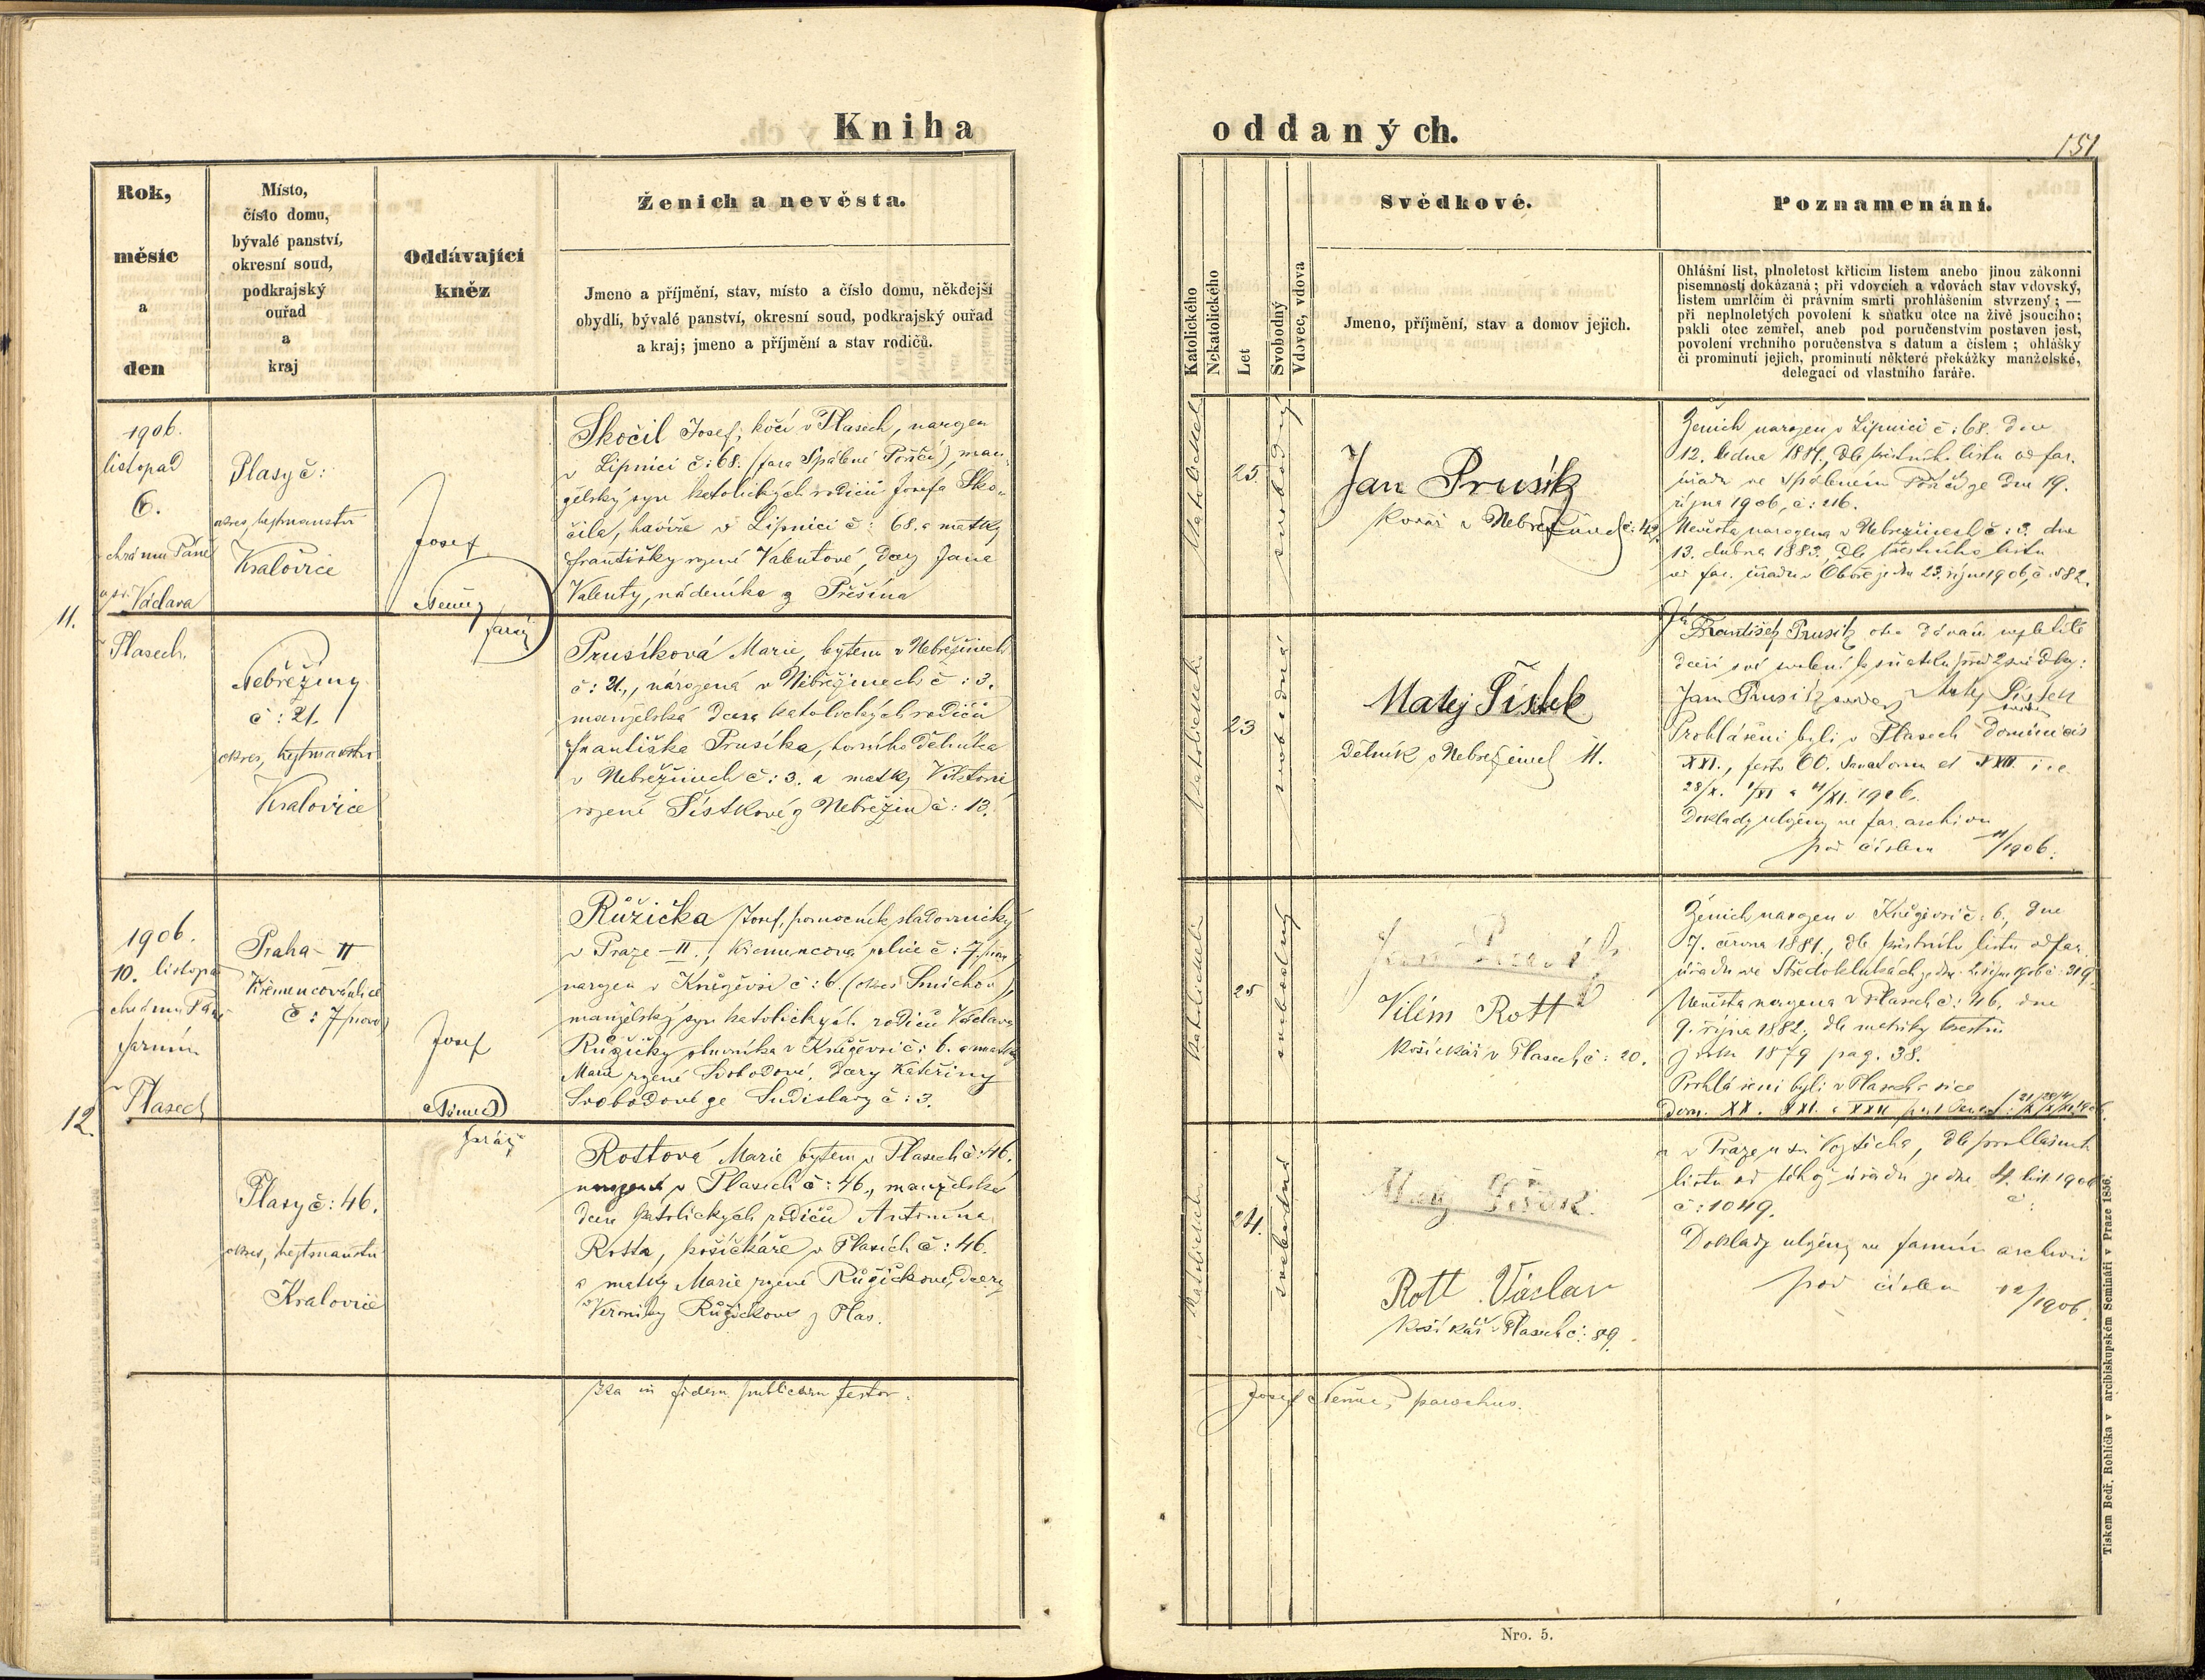 Kniha
oddaných.
151
Rok,
měsíc
a
den
Místo,
číslo domu,
bývalé panství,
okresní soud,
podkrajský
ouřad
a
kraj
Oddávající
kněz
Ženich a nevěsta.
Jmeno a příjmění, stav, místo a číslo domu, někdejší
obydlí, bývalé panství, okresní soud, podkrajský ouřad
a kraj; jmeno a příjmění a stav rodičů.
Katolického
Nekatolického
Let
Svobodný
Vdovec, vdova
Svědkové.
Jmeno, příjmění, stav a domov jejich.
Poznamenání.
Ohlášní list, plnoletost křticím listem anebo jinou zákonní
písemností dokázaná; při vdovcích a vdovách stav vdovský,
listem umrlčím či právním smrti prohlášením stvrzený; —
při neplnoletých povolení k sňatku otce na živě jsoucího;
pakli otec zemřel, aneb pod poručenstvím postaven jest,
povolení vrchního poručenstva s datum a číslem; ohlášky
či prominutí jejich, prominutí některé překážky manželské,
delegací od vlastního faráře.
11.
1906.
listopad
6.
chrámu Páně
sv. Václava
v Plasech.
Plasy č:
okres, hejtmanství
Kralovice
Nebřežiny
č: 21.
okres, hejtmanství
Kralovice
Josef
Němec
farář
Skočil Josef, kočí v Plasech, narozen
v Lipnici č: 68. (fara Spálené Poříčí), man-
želský syn katolických rodičů Josefa Sko-
čila, havíře v Lipnici č: 68. a matky
Františky rozené Valentové, dcery Jana
Valenty, nádeníka z Přešína
Prusíková Marie, bytem v Nebřežinech
č: 21., narozená v Nebřežinech č: 3.
manželská dcera katolických rodičů
Františka Prusíka, horního dělníka
v Nebřežinech č: 3. a matky Viktorie
rozené Šístkové z Nebřežin č: 13.
katolické
25.
svobodný
katolické
23
svobodná
Jan Prusík
Kovář v Nebřežinech č: 42.
Matěj Šístek
Dělník v Nebřežinech 11.
Ženich narozen v Lipnici č: 68. dne
12. ledna 1881, dle křestního listu od far.
úřadu ve Spáleném Poříčí ze dne 19.
října 1906, č: 216.
Nevěsta narozena v Nebřežinech č: 3. dne
13. dubna 1883, dle křestního listu
od far. úřadu v Oboře ze dne 23. října 1906, č: 582.
Já
František Prusík otec dávám nezletilé
dceři své svolení k sňatku před 2 svědky:
Jan Prusík svědek Matěj Šístek
svědek
Prohlášeni byli v Plasech Dominicis
XXI., festo OO. Sanctorum et XXII. i.e.
28/X. 1/XI a 4/XI. 1906.
Doklady uloženy ve far. archivu
pod číslem 11/1906.
12.
1906.
10. listopad
chrámu Páně
farním
v Plasech
Praha - II
Křemencová ulice
č: 7 nové
Plasy č: 46.
okres, hejtmanství
Kralovice
Josef
Němec
farář
Růžička Josef, pomocník sladovnický
v Praze - II., Křemencová ulice č: 7. nové
narozen v Kněževsi č: 6. (okres Smíchov),
manželský syn katolických rodičů Václava
Růžičky v Kněževsi č: 6. a matky
Marie rozené Svobodové, dcery Kateřiny
Svobodové ze č: 3.
Rottová Marie bytem v Plasech č: 46.
narozená v Plasech č: 46., manželská
dcera katolických rodičů Antonína
Rotta, košíčkáře v Plasích č: 46.
a matky Marie rozené Růžičkové, dcery
Veroniky Růžičkové z Plas.
katolické
25
svobodný
katolické
24.
svobodná
Jan Prusík
Vilém Rott
Košíčkář v Plasech č: 20.
Matěj Šístek
Rott Václav
Košíkář v Plasech č: 89.
Ženich narozen v Kněževsi č: 6., dne
7. června 1881, dle křestního listu od far.
úřadu ve Středoklukách ze dne října 1906 č: 319.
Nevěsta narozena v Plasech č: 46. dne
9. října 1882, dle matriky křestní
z roku 1879 pag. 38.
Prohlášeni byli v Plasech a sice
Dom. XX. XXI. a XXII
a v Praze u sv. Vojtěcha, dle prohlašního
listu od téhož úřadu ze dne 4. list. 1906
č: 1049.
Doklady uloženy ve farním archivu
pod číslem 12/1906.
Ita in fidem publicam testor:
Josef Němec, parochus.
Nro. 5.
Tiskem Bedř. Rohlíčka v arcibiskupském Semináři v Praze 1856.